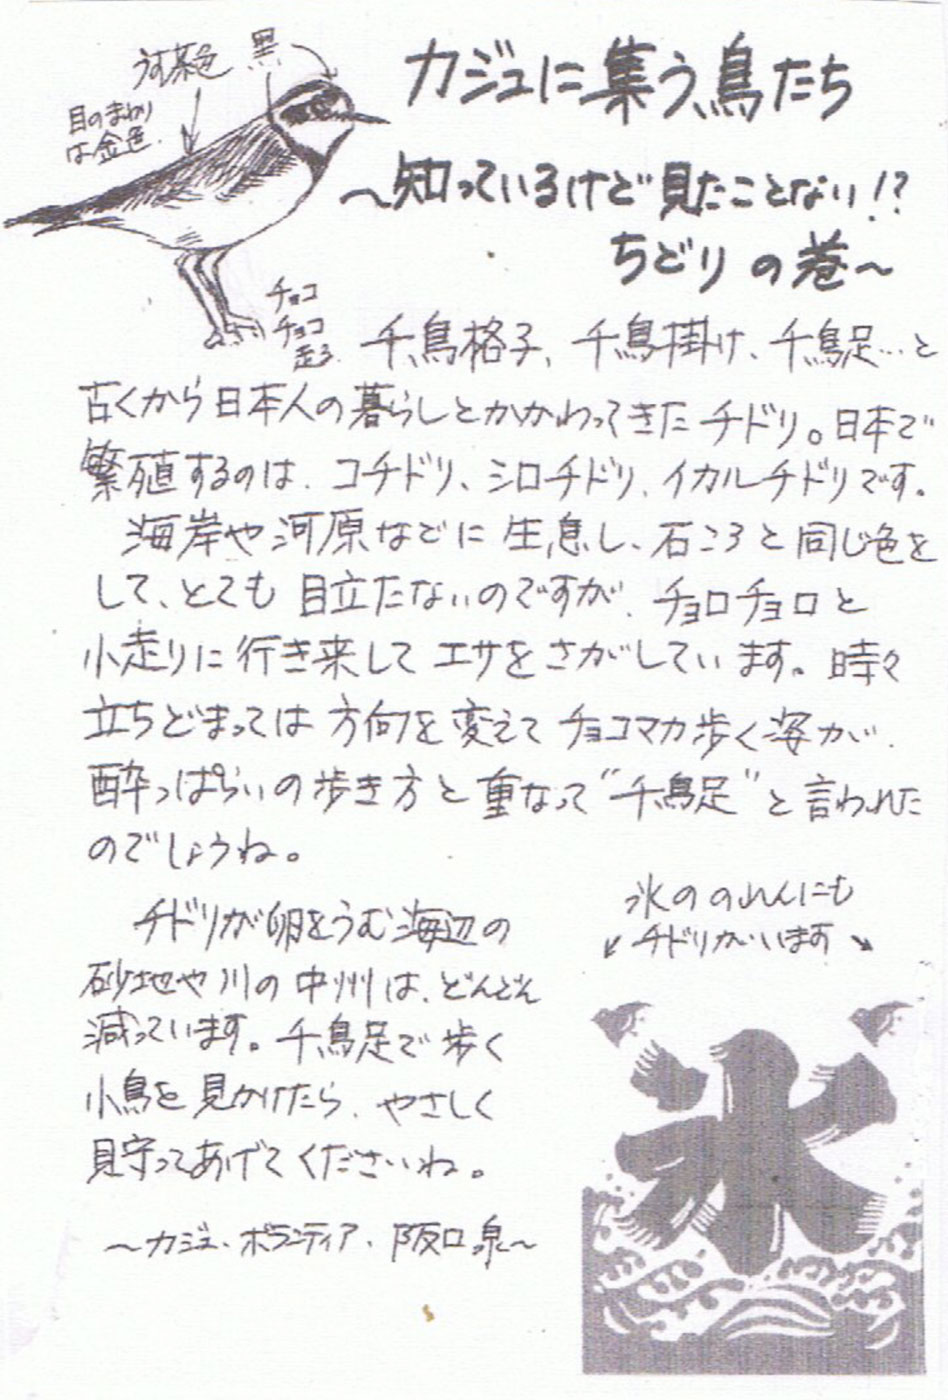 うす茶色 黒
目のまわり
は金色.
カジュに集う鳥たち
～知っているけど見たことない!?
ちどりの巻～
チョコ
チョコ
走る.
千鳥格子、千鳥掛け、千鳥足…と
古くから日本人の暮らしとかかわってきたチドリ。日本で
繁殖するのは、コチドリ、シロチドリ、イカルチドリです。
海岸や河原などに生息し、石ころと同じ色を
して、とても目立たないのですが、チョロチョロと
小走りに行き来してエサをさがしています。時々
立ちどまっては方向を変えてチョコマカ歩く姿が、
酔っぱらいの歩き方と重なって“千鳥足”と言われた
のでしょうね。
チドリが卵をうむ海辺の
砂地や川の中州は、どんどん
減っています。千鳥足で歩く
小鳥を見かけたら、やさしく
見守ってあげてくださいね。
～カジュ・ボランティア、阪口泉～
氷ののれんにも
チドリがいます
氷